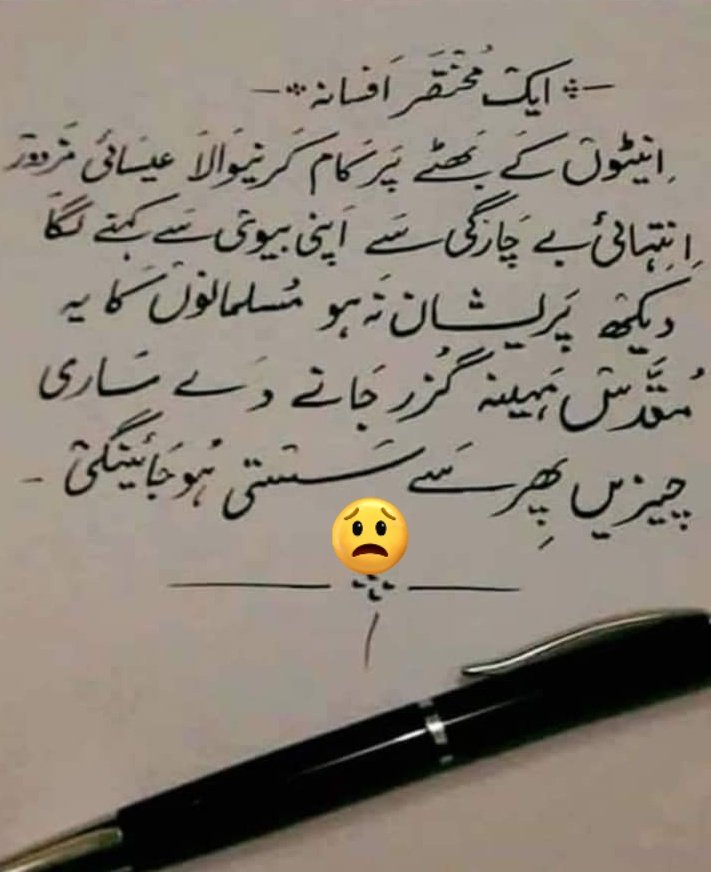 ایک مُختَصَر اَفسانہ
اِنیٹوں کے بَھٹے پَر کَام کَرنیوَالاَ عیسَائی مَزدور
اِنتِہائی بے چَارَگی سَے اَپنی بیوی سَے کہنے لگَا
دیکھ پَریشان نَہ ہو مُسلمانوں کَا یہ
مُقَدَّس مَہینہ گُزر جَانے دَے سَاری
چیزیں پِھر سَے سَستی ہُوجَائینگی ۔